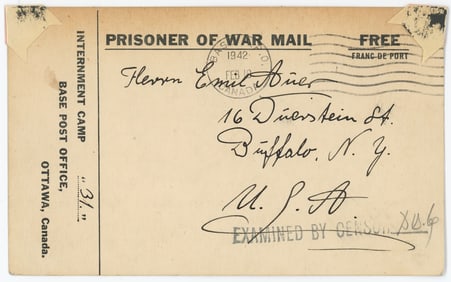 PRISONER OF WAR MAIL FREE
FRANC DE PORT
1942
CANADA
Herrn Emil Auer
16 Duerstein St.
Buffalo, N. Y.
U. S. A.
EXAMINED BY CENSOR
INTERNMENT CAMP "31."
BASE POST OFFICE,
OTTAWA, Canada.